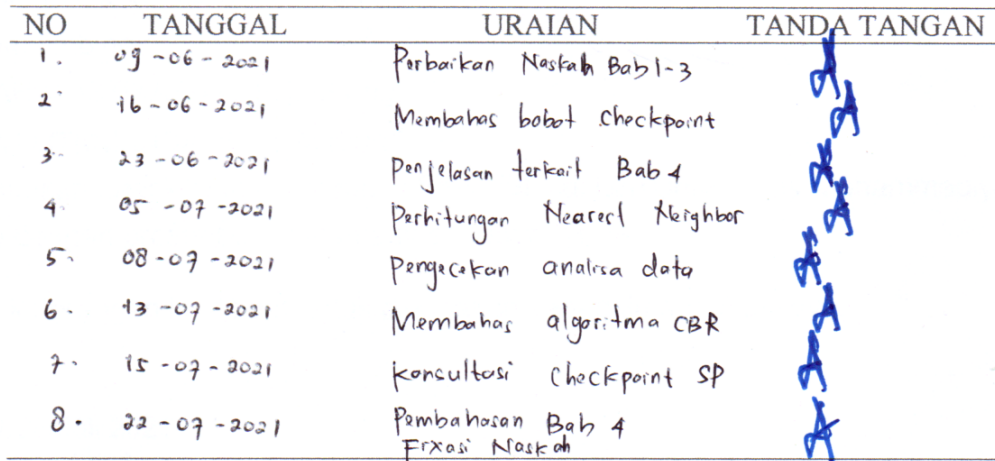 NO TANGGAL URAIAN TANDA TANGAN
1. 09-06-2021 Perbaikan Naskah Bab 1-3
2 16-06-2021 Membahas bobot checkpoint
3. 23-06-2021 Penjelasan terkait Bab 4
4. 05-07-2021 Perhitungan Nearest Neighbor
5. 08-07-2021 pengecekan analisa data
6. 13-07-2021 Membahas algoritma CBR
7. 15-07-2021 konsultasi checkpoint SP
8. 22-07-2021 Pembahasan Bab 4
Fixasi Naskah